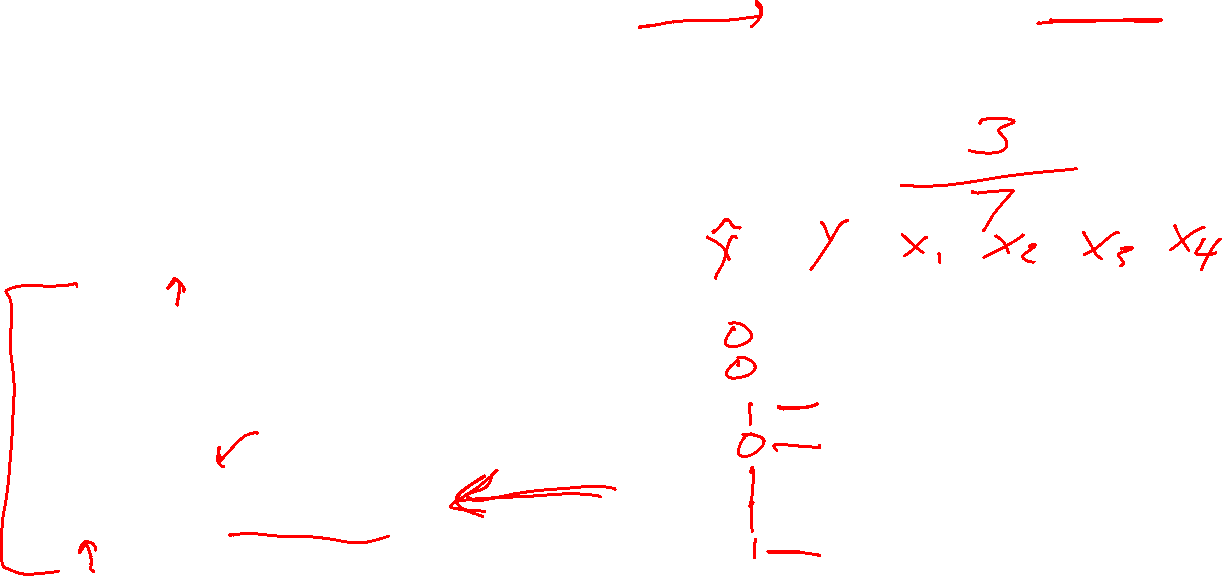 3
7
ŷ y x₁ x₂ x₃ x₄
0
0
1
0
1
1